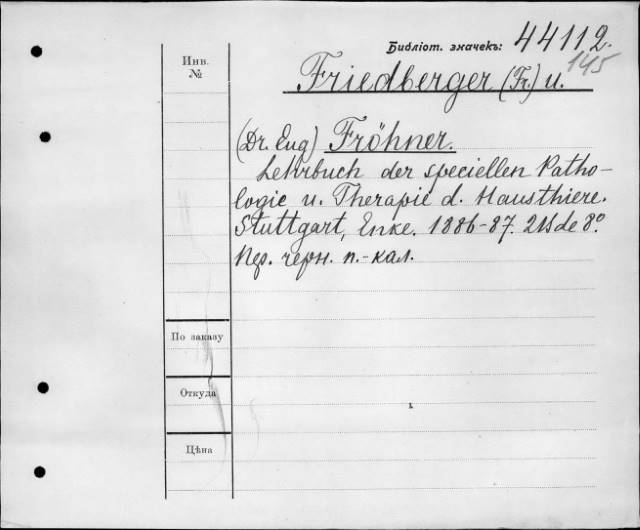 Библіот. значекъ: 44112.
145
Инв.
№
Friedberger (Fr.) u.
(Dr. Eug) Fröhner.
Lehrbuch der speciellen Patho-
logie u. Therapie d. Hausthiere.
Stuttgart, Enke. 1886-87. 2 Bde 8º.
Пер. черн. п.-кал.
По заказу
Откуда
Цѣна